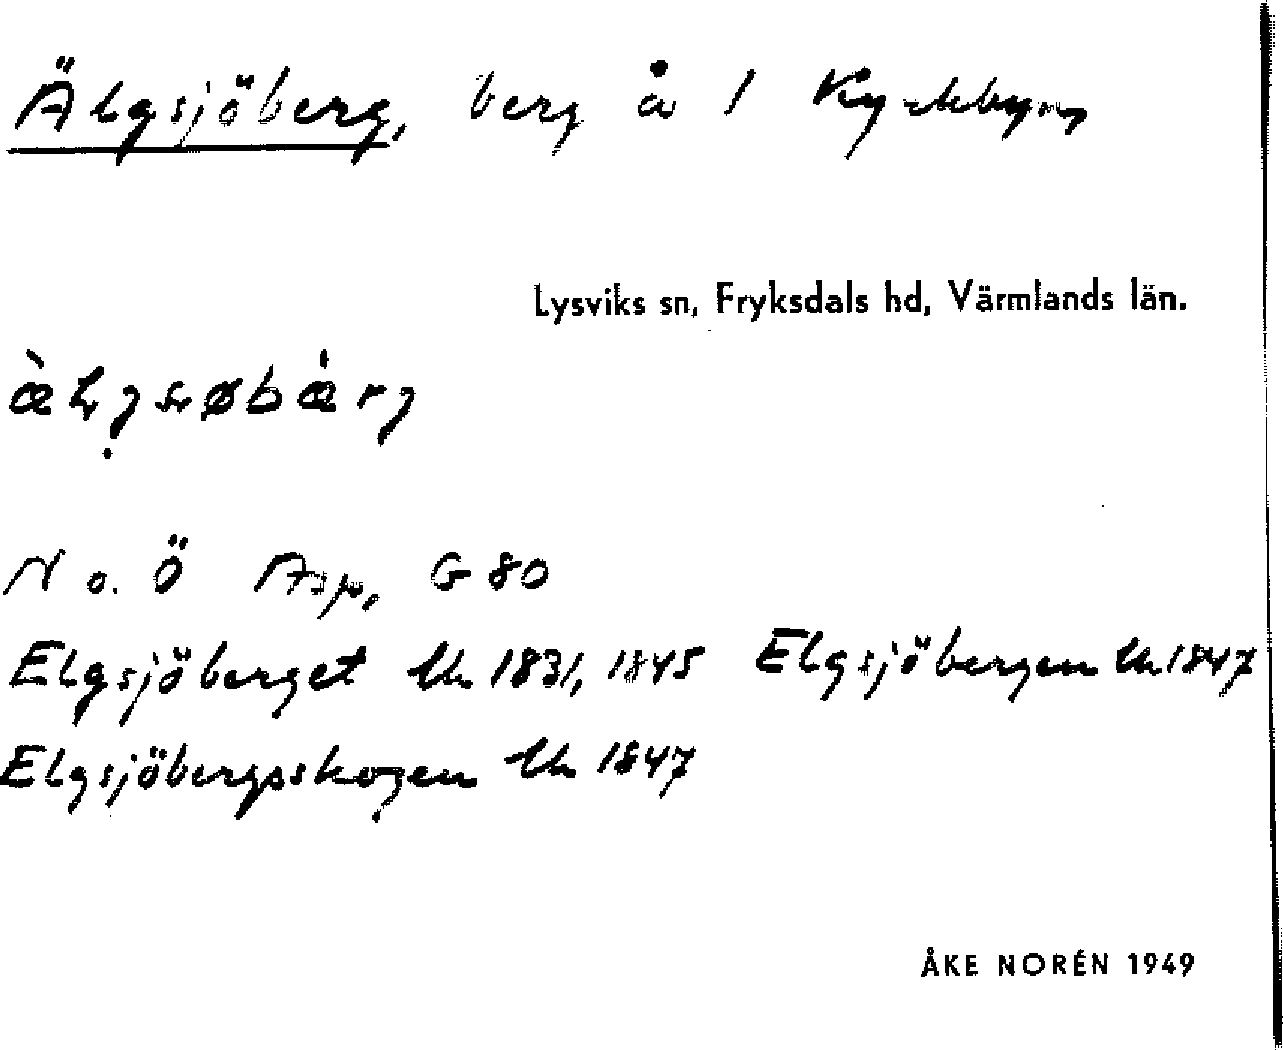 Älgsjöberg, berg å 1 Kyrkbyn
Lysviks sn, Fryksdals hd, Värmlands län.
N o. Ö Asp, G 80
Elgsjöberget Uk 1831, 1845 Elgsjöbergen Uk 1847
Elgsjöbergsskogen Uk 1847
ÅKE NORÉN 1949